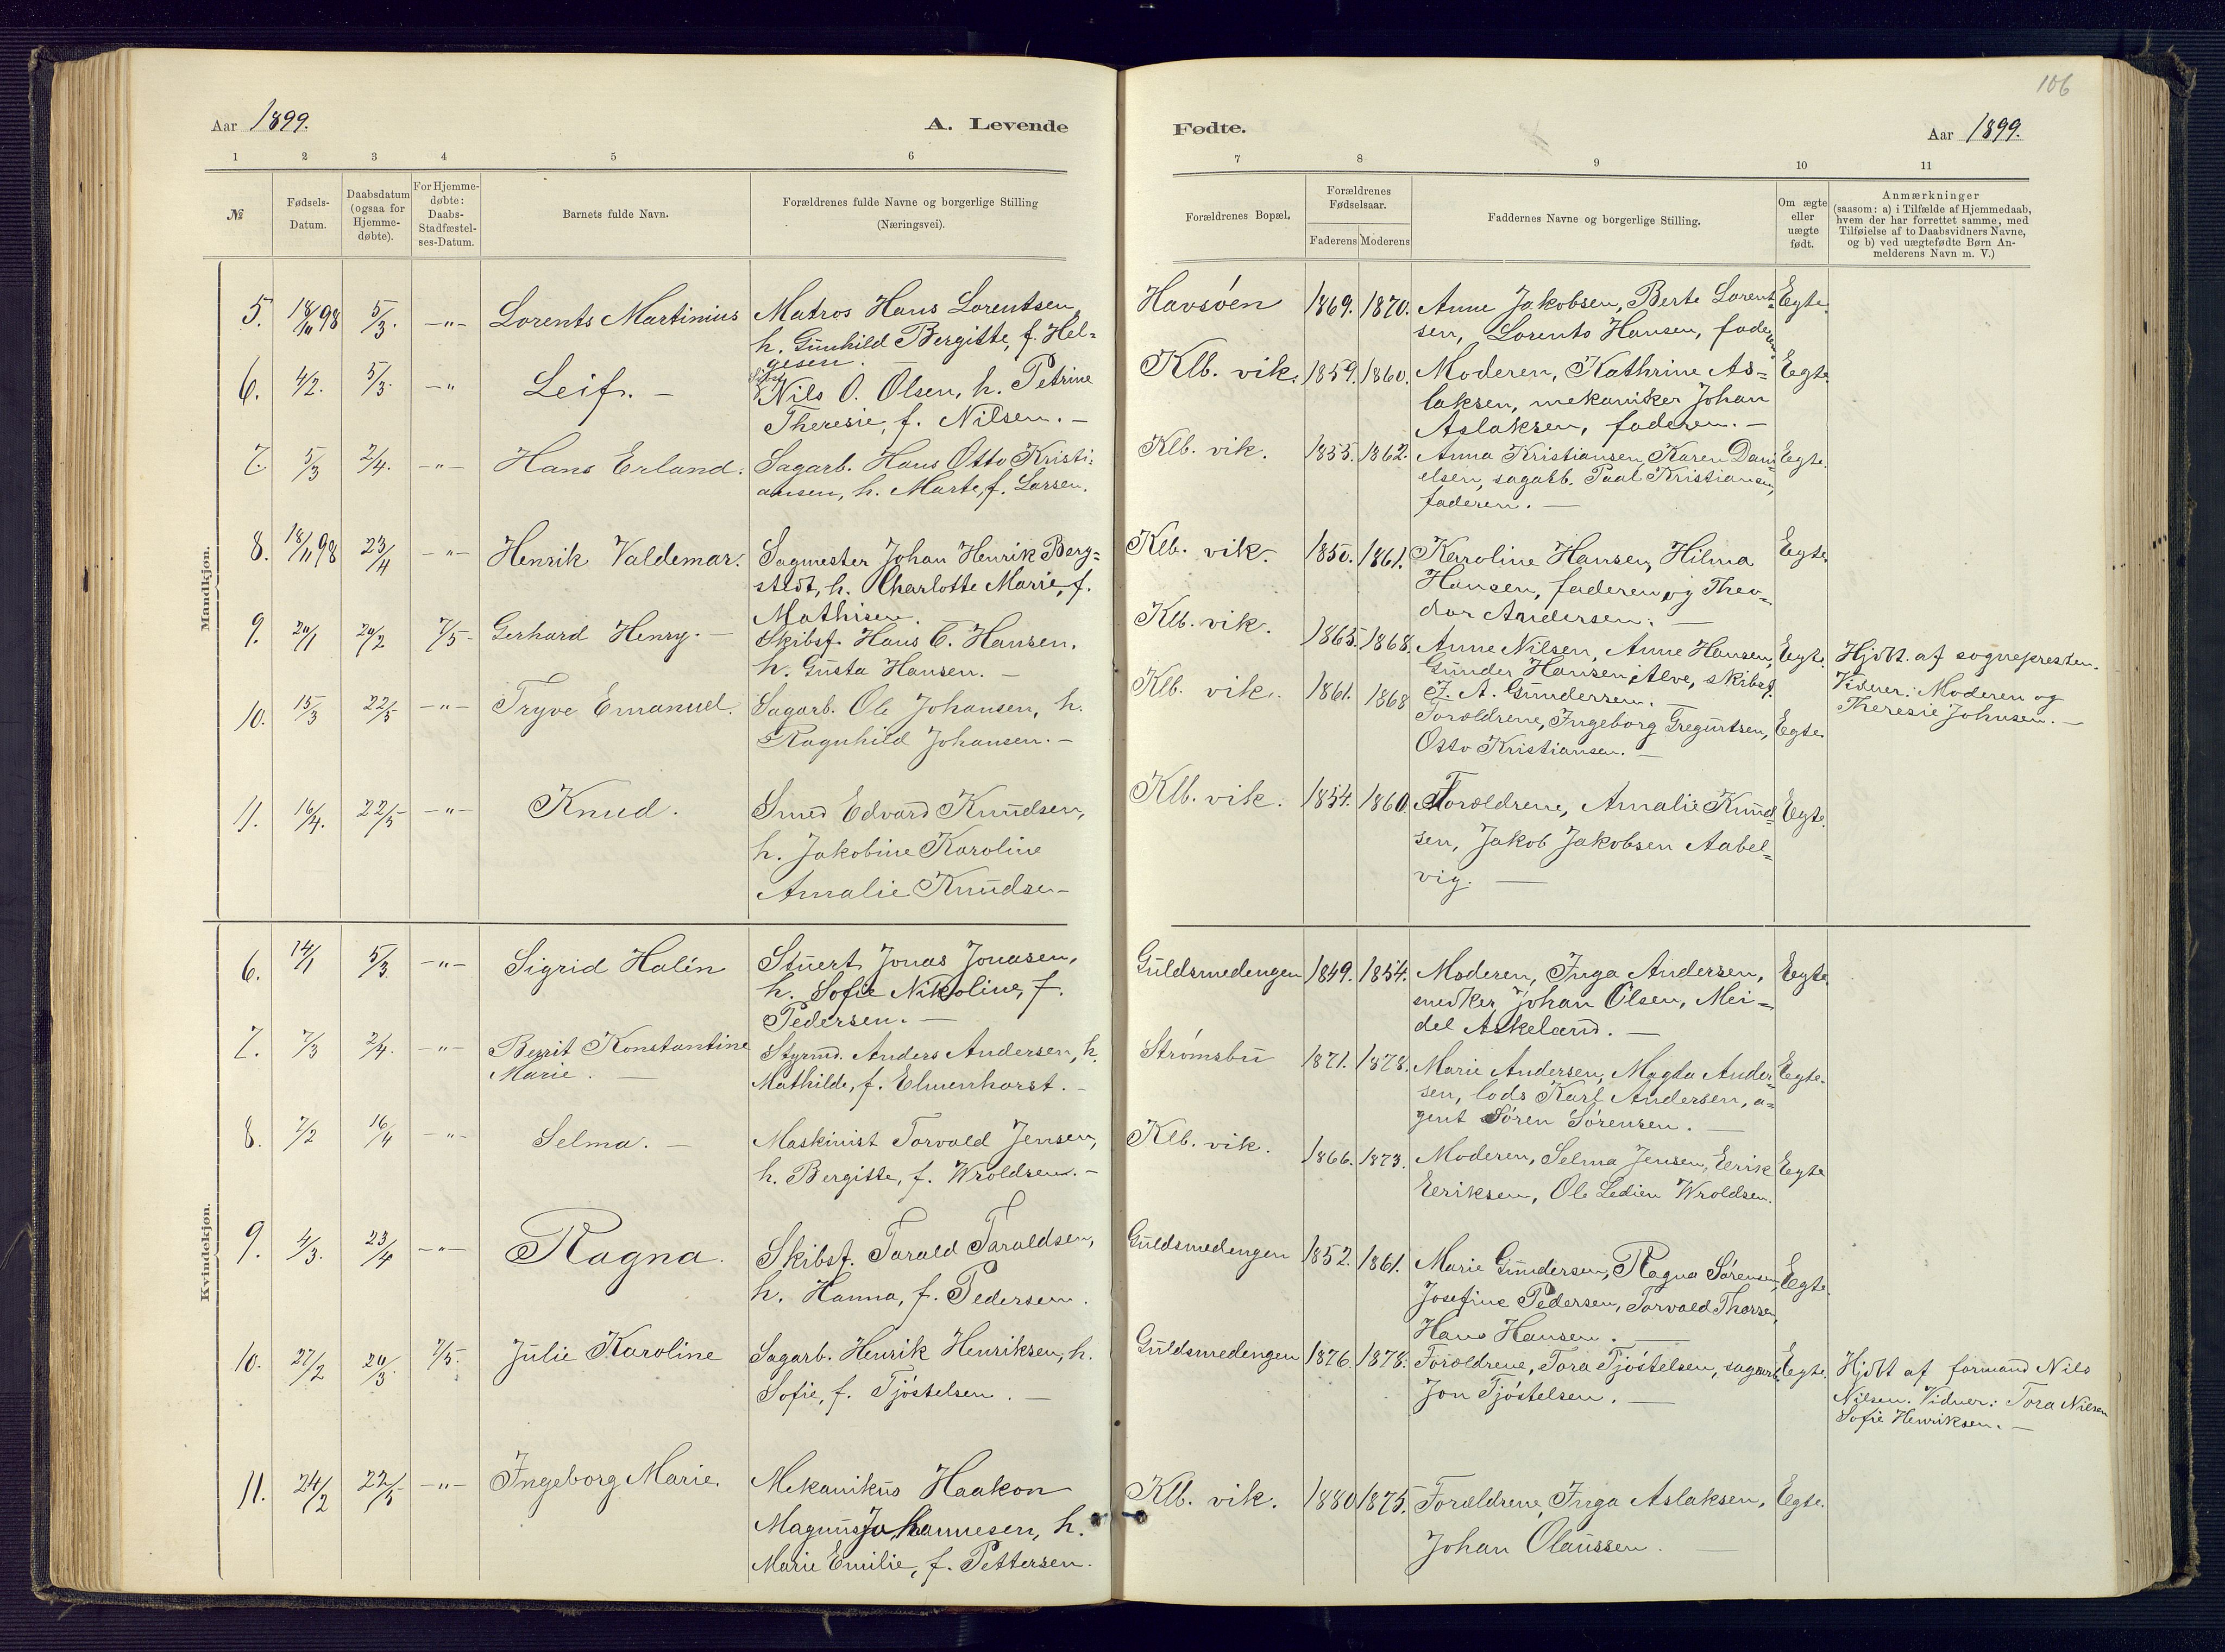 106
Aar 1899.
A. Levende
Fødte.
Aar 1899.
1 2 3 4 5 6 7 8 9 10 11
№
Fødsels-
Datum.
Daabsdatum
(ogsaa for
Hjemme-
døbte).
For Hjemme-
døbte:
Daabs-
Stadfæstel-
ses-Datum.
Barnets fulde Navn.
Forældrenes fulde Navne og borgerlige Stilling
(Næringsvei).
Forældrenes Bopæl.
Forældrenes
Fødselsaar.
Faderens Moderens
Faddernes Navne og borgerlige Stilling.
Om ægte
eller
uægte
født.
Anmærkninger
(saasom: a) i Tilfælde af Hjemmedaab,
hvem der har forrettet samme, med
Tilføielse af to Daabsvidners Navne,
og b) ved uægtefødte Børn An-
melderens Navn m. V.)
Mandkjøn.
5. 18/11 98 5/3. -"- Lorents Martinius
Matros Hans Lorentsen,
h. Gunhild Bergitte, f. Hel-
gesen.
Havsöen 1869. 1870.
Anne Jakobsen, Berte Lorent-
sen, Lorents Hansen, faderen.
Egte.
6. 4/2. 5/3. -"- Leif. -
Nils O. Olsen, h. Petrine
Theresie, f. Nilsen. -
Klb. vik. 1859. 1860.
Moderen, Kathrine As-
laksen, mekaniker Johan
Aslaksen, faderen. -
Egte.
7. 5/3 2/4. -"- Hans Erland.
Sagarb. Hans Otto Kristi-
ansen, h. Marte, f. Larsen.
Klb. vik. 1855. 1862.
Anna Kristiansen, Karen Dani-
elsen, sagarb. Paal Kristiansen,
faderen. -
Egte.
8. 18/11 98 23/4 -"- Henrik Valdemar.
Sagmester Johan Henrik Berg-
stedt, h. Charlotte Marie, f.
Mathisen.
Klb. vik. 1850. 1861.
Karoline Hansen, Hilma
Hansen, faderen og Theo-
dor Andersen. -
Egte.
9. 20/1 20/2 7/5- Gerhard Henry. -
Skibsf. Hans C. Hansen.
h. Gusta Hansen. -
Klb. vik. 1865. 1868.
Anne Nilsen, Anne Hansen,
Gunder Hansen Alve, skibsf.
J. A. Gundersen. -
Egte.
Hjdbt. af sognepresten.
Vidner: Moderen og
Theresie Johnsen. -
10. 15/3 22/5 -"- Trygve Emanuel.
Sagarb. Ole Johansen, h.
Ragnhild Johansen. -
Klb. vik. 1861. 1868
Foroldrene, Ingeborg Gregertsen,
Otto Kristiansen. -
Egte.
11. 16/4. 22/5 -"- Knud.
Smed Edvard Knudsen,
h. Jakobine Karoline
Amalie Knudsen
Klb. vik. 1854. 1860.
Foroldrene, Amalie Knud-
sen, Jakob Jakobsen Aabel-
vig. -
Egte.
Kvindekjøn.
6. 14/1 5/3. -"- Sigrid Halén
Stuert Jonas Jonasen,
h. Sofie Nikoline, f.
Pedersen. -
Guldsmedengen 1849. 1854.
Moderen, Inga Andersen,
snedker Johan Olsen, Mei-
del Askeland. -
Egte.
7. 7/3 2/4. -"- Berit Konstantine
Marie. -
Styrmd. Anders Andersen, h.
Mathilde, f. Elmenhorst. -
Strömsbu 1871. 1878.
Marie Andersen, Magda Ander-
sen, lods Karl Andersen, a-
gent Sören Sörensen. -
Egte.
8. 7/2 16/4 -"- Selma. -
Maskinist Torvald Jensen,
h. Bergitte, f. Wroldsen. -
Klb. vik. 1866. 1873.
Moderen, Selma Jensen, Eerik
Eeriksen, Ole Ledien Wroldsen.
Egte
9. 4/3. 23/4 -"- Ragna.
Skibsf. Tarald Taraldsen,
h. Hanna, f. Pedersen.
Guldsmedengen 1852. 1861.
Marie Gundersen, Ragna Sörensen,
Josefine Pedersen, Torvald Thorsen,
Hans Hansen. -
Egte.
10. 27/2 20/3. 7/5. Julie Karoline
Sagarb. Henrik Henriksen, h.
Sofie, f. Tjöstelsen. -
Guldsmedengen 1876. 1878.
Foroldrene, Tora Tjöstelsen, sagarb.
Jon Tjöstelsen. -
Egte.
Hjdbt af formand Nils
Nilsen. Vidner: Tora Nilsen
Sofie Henriksen. -
11. 24/2 22/5 -"- Ingeborg Marie.
Mekanikus Haakon
Magnus Johannesen, h.
Marie Emilie, f. Pettersen.
Klb. vik. 1880 1875.
Foroldrene, Inga Aslaksen,
Johan Olaussen. -
Egte.